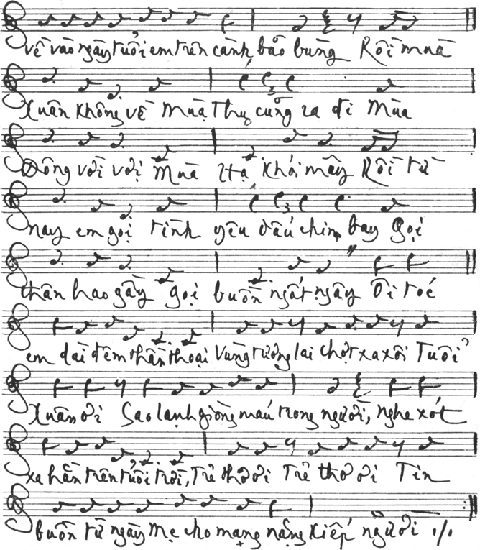 về vào ngày tuổi em trên cành bão bùng Rồi mùa
Xuân không về Mùa Thu cũng ra đi Mùa
Đông vời vợi Mùa Hạ khói mây Rồi từ
nay em gọi tình yêu dấu chim bay Gọi
thân hao gầy gọi buồn ngất ngây Ôi tóc
em dài đêm thần thoại Vùng tương lai chợt xa xôi Tuổi
Xuân ơi Sao lạnh giòng máu trong người, nghe xót
xa hằn trên tuổi trời, Trẻ thơ ơi Trẻ thơ ơi Tin
buồn từ ngày Mẹ cho mang nặng kiếp người ./.